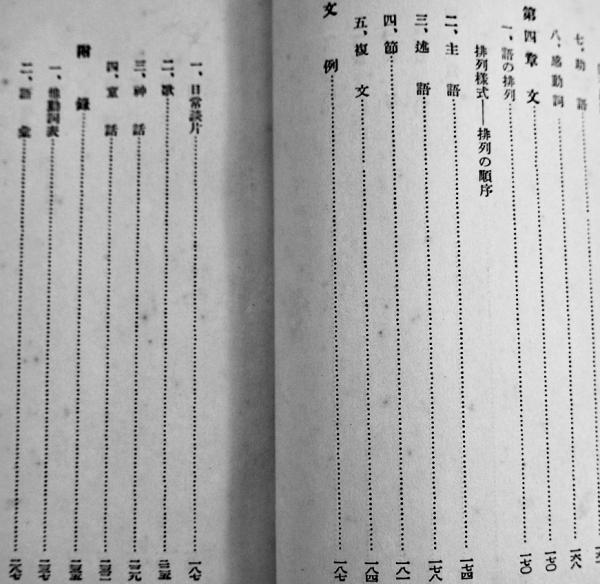 七、助語
八、感動詞 一六八
第四章 文 一七〇
一、語の排列 一七〇
排列様式――排列の順序
二、主語 一七四
三、述語 一七八
四、節 一八一
五、複文 一八四
文例 一八七
一、日常談片 一八七
二、歌
三、神話
四、童話
附録
一、他動詞表
二、語彙